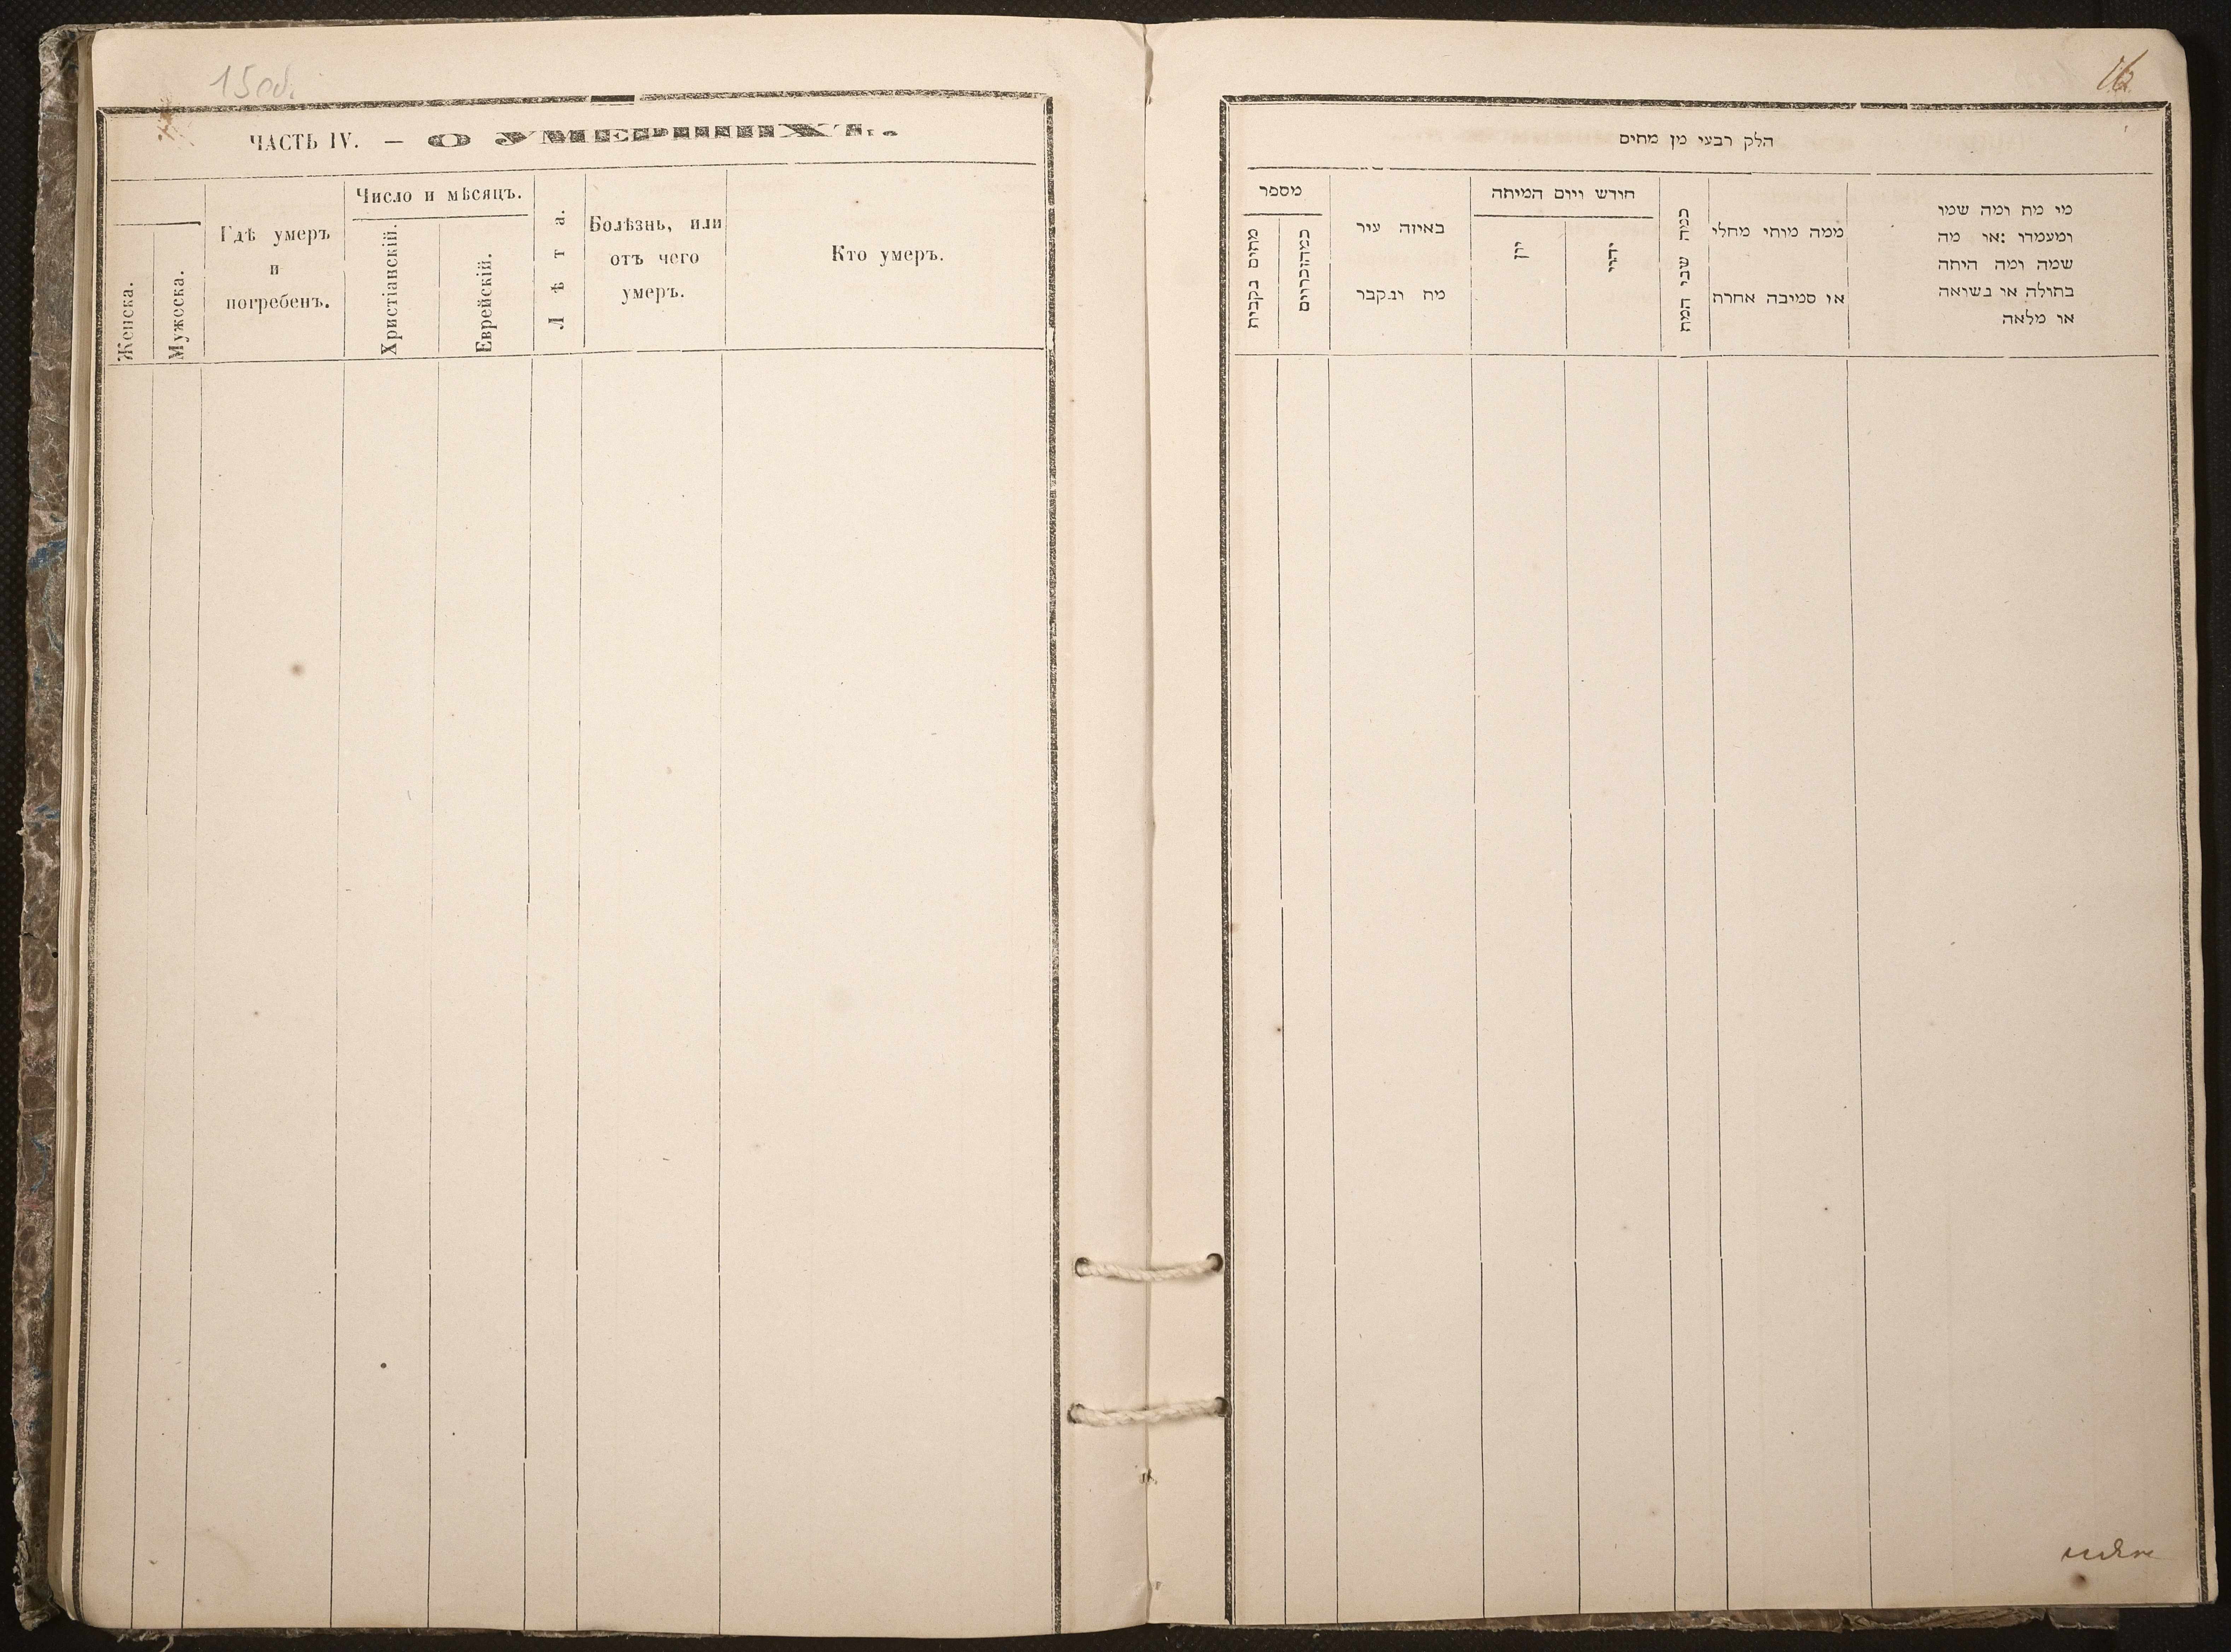 15 об.
ЧАСТЬ IV. — О УМЕРШИХЪ.
Женска.
Мужеска.
Гдѣ умеръ
и
погребенъ.
Число и мѣсяцъ.
Христіанскій.
Еврейскій.
Лѣта.
Болѣзнь, или
отъ чего
умеръ.
Кто умеръ.
16
חלק רבעי מן מתים
מספר
מתים נקבית
כמה זכרים
באיזה עיר
מת ונקבר
חודש ויום המיתה
יון
יהודי
כמה שני המת
ממה מותו מחלי
או סמיבה אחרת
מי מת ומה שמו
ומעמדו :או מה
שמה ומה היתה
בתולה או נשואה
או מלאה